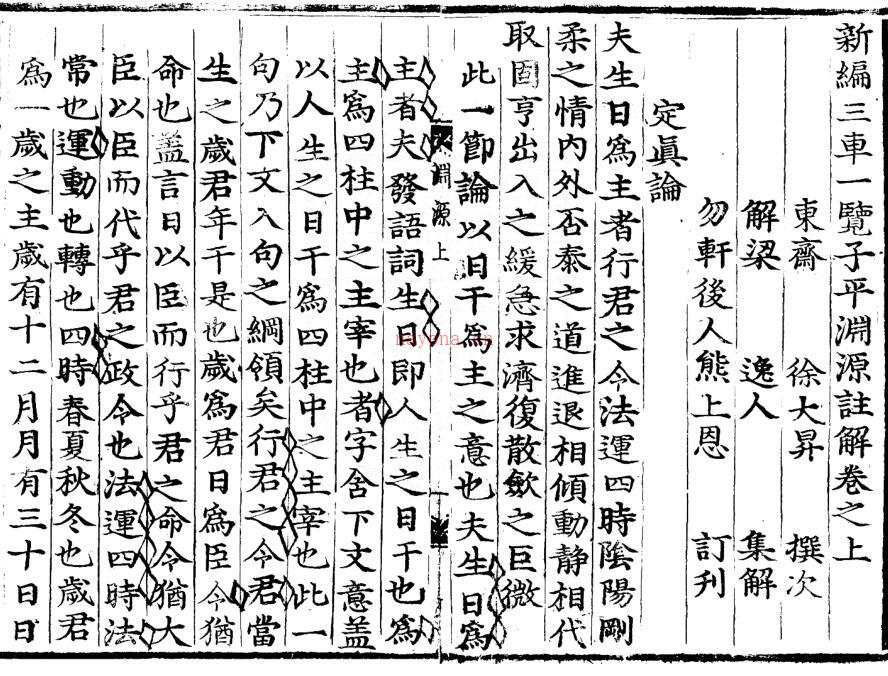 新編三車一覽子平淵源註解卷之上
東齋 徐大昇 撰次
解梁 逸人 集解
勿軒後人熊上恩 訂刋
定眞論
夫生日爲主者行君之令法運四時陰陽剛
柔之情内外否泰之道進退相傾動静相代
取固亨出入之緩急求濟復散斂之巨微
此一節論以日干爲主之意也夫生日爲
淵源上
主者夫發語詞生日即人生之日干也爲
主爲四柱中之主宰也者字含下文意盖
以人生之日干爲四柱中之主宰也此一
句乃下文入句之綱領矣行君之令君當
生之歲君年干是也歲爲君日爲臣令猶
命也盖言日以臣而行乎君之命令猶大
臣以臣而代乎君之政令也法運四時法
常也運動也轉也四時春夏秋冬也歲君
爲一歲之主歲有十二月月有三十日日